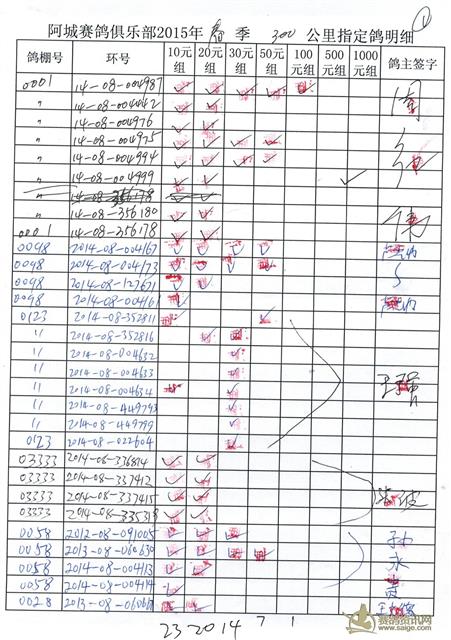 阿城赛鸽俱乐部2015年春季 300 公里指定鸽明细 ①
鸽棚号 环号 10元组 20元组 30元组 50元组 100元组 500元组 1000元组 鸽主签字
0001 14-08-004987
" 14-08-004442
" 14-08-004976
" 14-08-004975
" 14-08-004994
" 14-08-004999
" 14-08-356178
" 14-08-356180
0001 14-08-356178
0098 2014-08-004167
0098 2014-08-004173
0098 2014-08-127671
0098 2014-08-004161
0123 2014-08-352811
" 2014-08-352816
" 2014-08-004632
" 2014-08-004633
" 2014-08-004634
" 2014-08-449793
" 2014-08-449799
0123 2014-08-022604
03333 2014-08-336814
03333 2014-08-337412
03333 2014-08-337415
03333 2014-08-335318
0058 2012-08-091005 孙
0058 2013-08-060630 永
0058 2014-08-004413
0058 2014-08-004414
0028 2013-08-060
23 20 14 7 1
赛鸽资讯网
www.saige.com